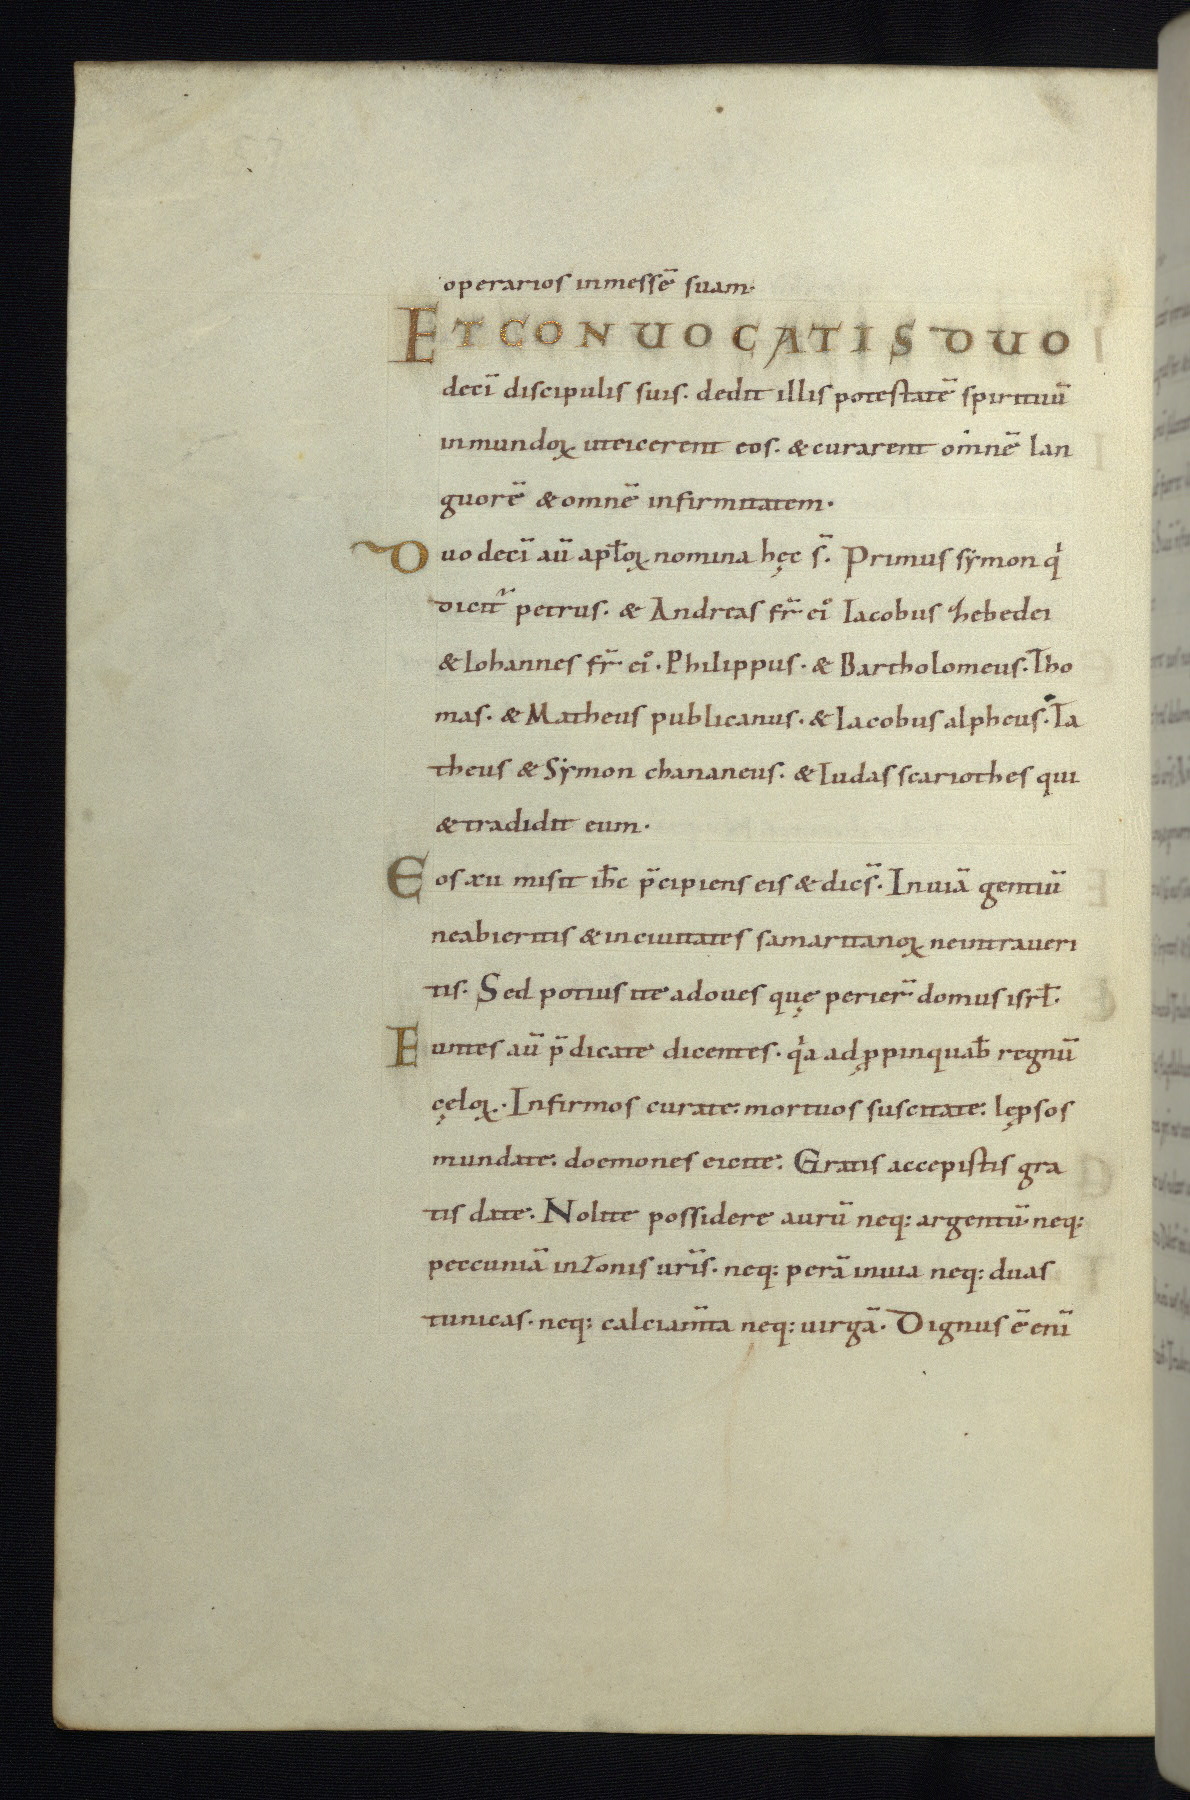 operarios inmessē suam·
ET CONUOCATIS DUO
decī discipulis suis· dedit illis potestatē spirituū
inmundoꝝ uteicerent eos· &curarent om̄nē lan
guorē &omnē infirmitatem·
Duo decī aū apl̄oꝝ nomina hęc s̄· Primus sẏmon q̇
dicit᷑ petrus· & Andreas fr̄ ei᷒ Iacobus Zhebedei
&Iohannes fr̄ ei᷒· Philippus· & Bartholomeus· Tho
mas· & Matheus publicanus· & Iacobus alpheus· Ta
theus & Sẏmon chananeus· & Iudas scariothes qui
&tradidit eum·
Eos xii misit ih̄c p̄cipiens eis &dics̄· Inuiā gentiū
neabieritis &inciuitates samaritanoꝝ neintraueri
tis· Sed potius ite adoues quę perier̄ domus isrl̄·
Euntes aū p̄dicate dicentes· q̇a adꝓpinquab̄ regnū
cęloꝝ· Infirmos curate: mortuos suscitate: lęprsos
mundate: doemones eicite: Gratis accepistis gra
tis date· Nolite possidere aurū neq: argentū· neq:
peccuniā inZonis ur̄is· neq: perā inuia neq: duas
tunicas· neq: calciam̄ta neq: uirgā· Dignus ē enī